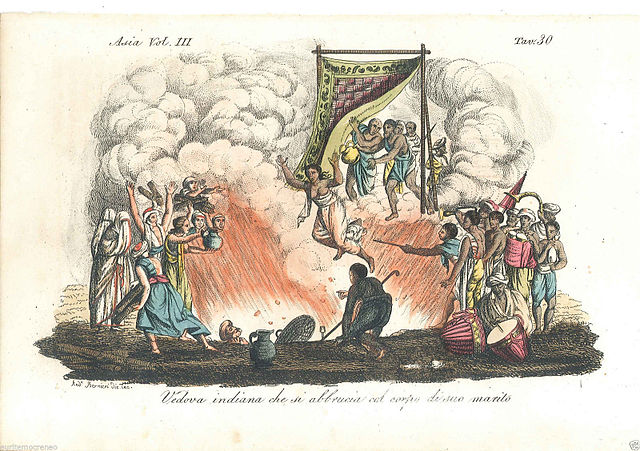 Asia Vol. III
Tav. 30
Vedova indiana che si abbrucia col corpo di suo marito
euritemocreneo